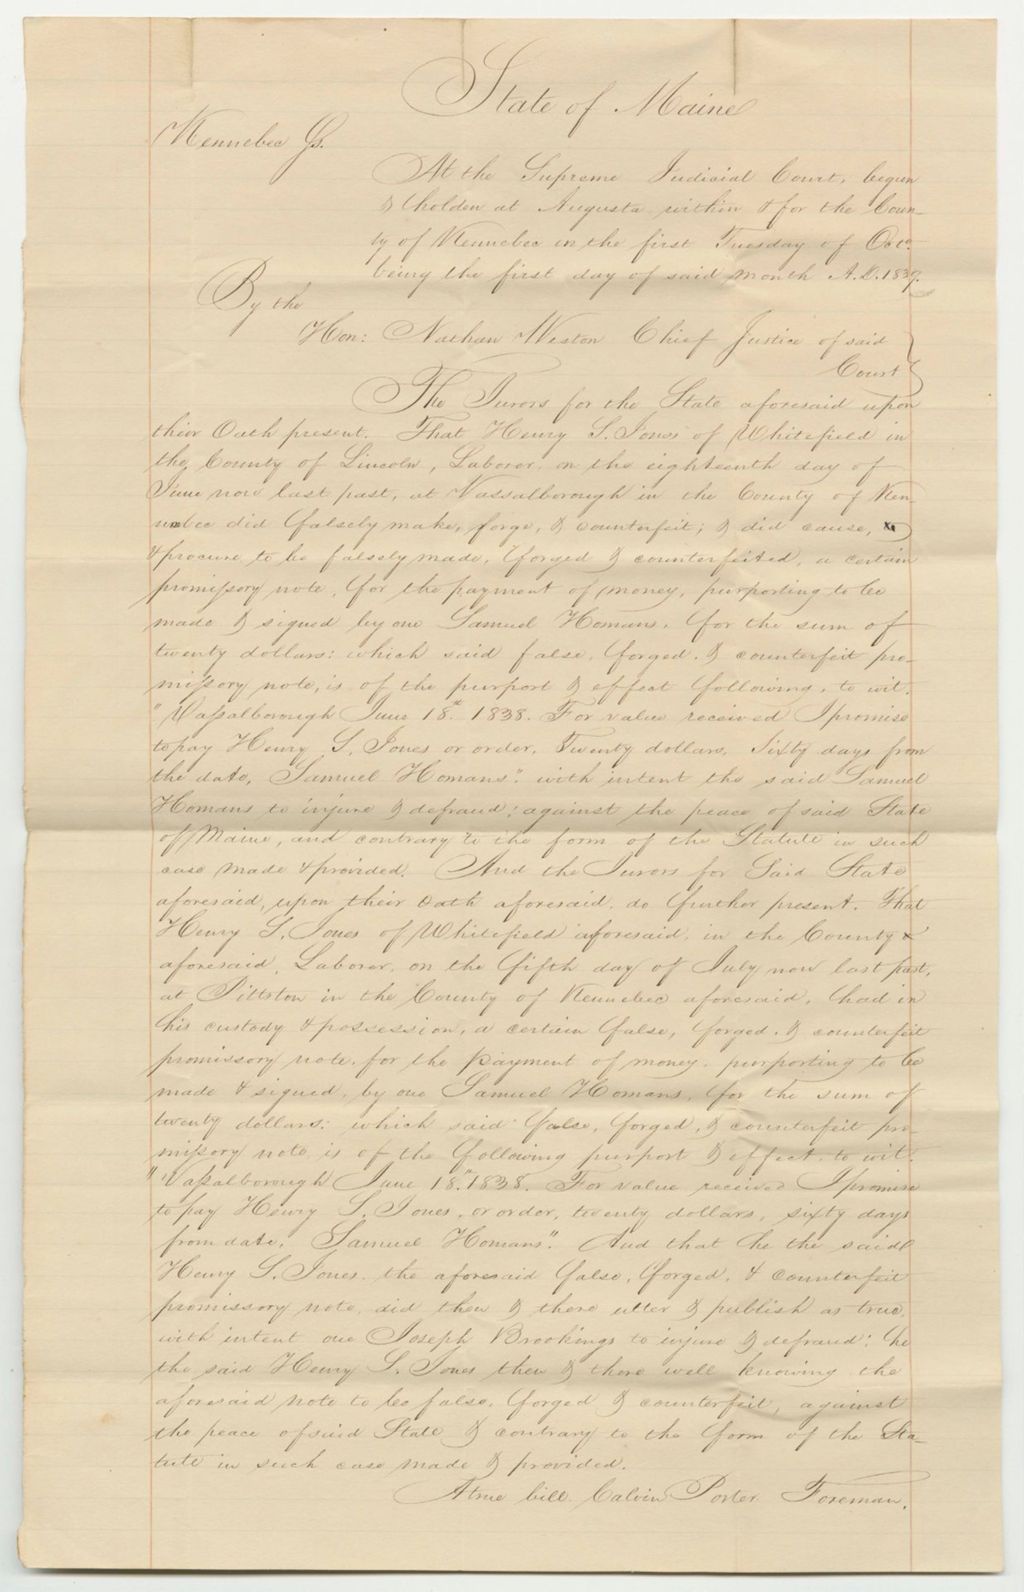 State of Maine
Kennebec Ss.
At the Supreme Judicial Court, begun
& holden at Augusta within & for the Coun-
ty of Kennebec in the first Tuesday of Octo.
being the first day of said month A.D. 1839.
By the
Hon: Nathan Weston Chief Justice of said
Court
The Jurors for the State aforesaid upon
their Oath present. That Henry S. Jones of Whitefield in
the, County of Lincoln, Laborer, on the eighteenth day of
June now last past, at Vassalborough in the County of Ken-
nebec did falsely make, forge, & counterfeit; & did cause,
& procure to be falsely made, forged & counterfeited, a certain
promissory note, for the payment of money, purporting to be
made & signed by one Samuel Homans, for the sum of
twenty dollars: which said false, forged, & counterfeit pro-
missory note, is of the purport & effect following, to wit.
"Vassalborough June 18th. 1838. For value received I promise
to pay Henry S. Jones or order, Twenty dollars, Sixty days from
the date, Samuel Homans." with intent the said Samuel
Homans to injure & defraud; against the peace of said State
of Maine, and contrary to the form of the Statute in such
case made & provided. And the Jurors for Said State
aforesaid, upon their oath aforesaid, do further present. That
Henry S. Jones of Whitefield aforesaid, in the County
aforesaid, Laborer, on the fifth day of July now last past,
at Pittston in the County of Kennebec aforesaid, had in
his custody & possession, a certain false, forged, & counterfeit
promissory note, for the payment of money, purporting to be
made & signed, by one Samuel Homans, for the sum of
twenty dollars: which said false, forged, & counterfeit pro-
missory note is of the following purport & effect, to wit.
"Vassalborough June 18." 1838. For value received I promise
to pay Henry S. Jones, or order, twenty dollars, sixty days
from date, Samuel Homans". And that he the said
Henry S. Jones, the aforesaid false, forged, & counterfeit
promissory note, did then & there utter & publish as true,
with intent one Joseph Brookings to injure & defraud: he
the said Henry S. Jones then & there well knowing the
aforesaid note to be false, forged & counterfeit, against
the peace of said State & contrary to the form of the Sta-
tute in such case made & provided.
A true bill. Calvin Porter Foreman.